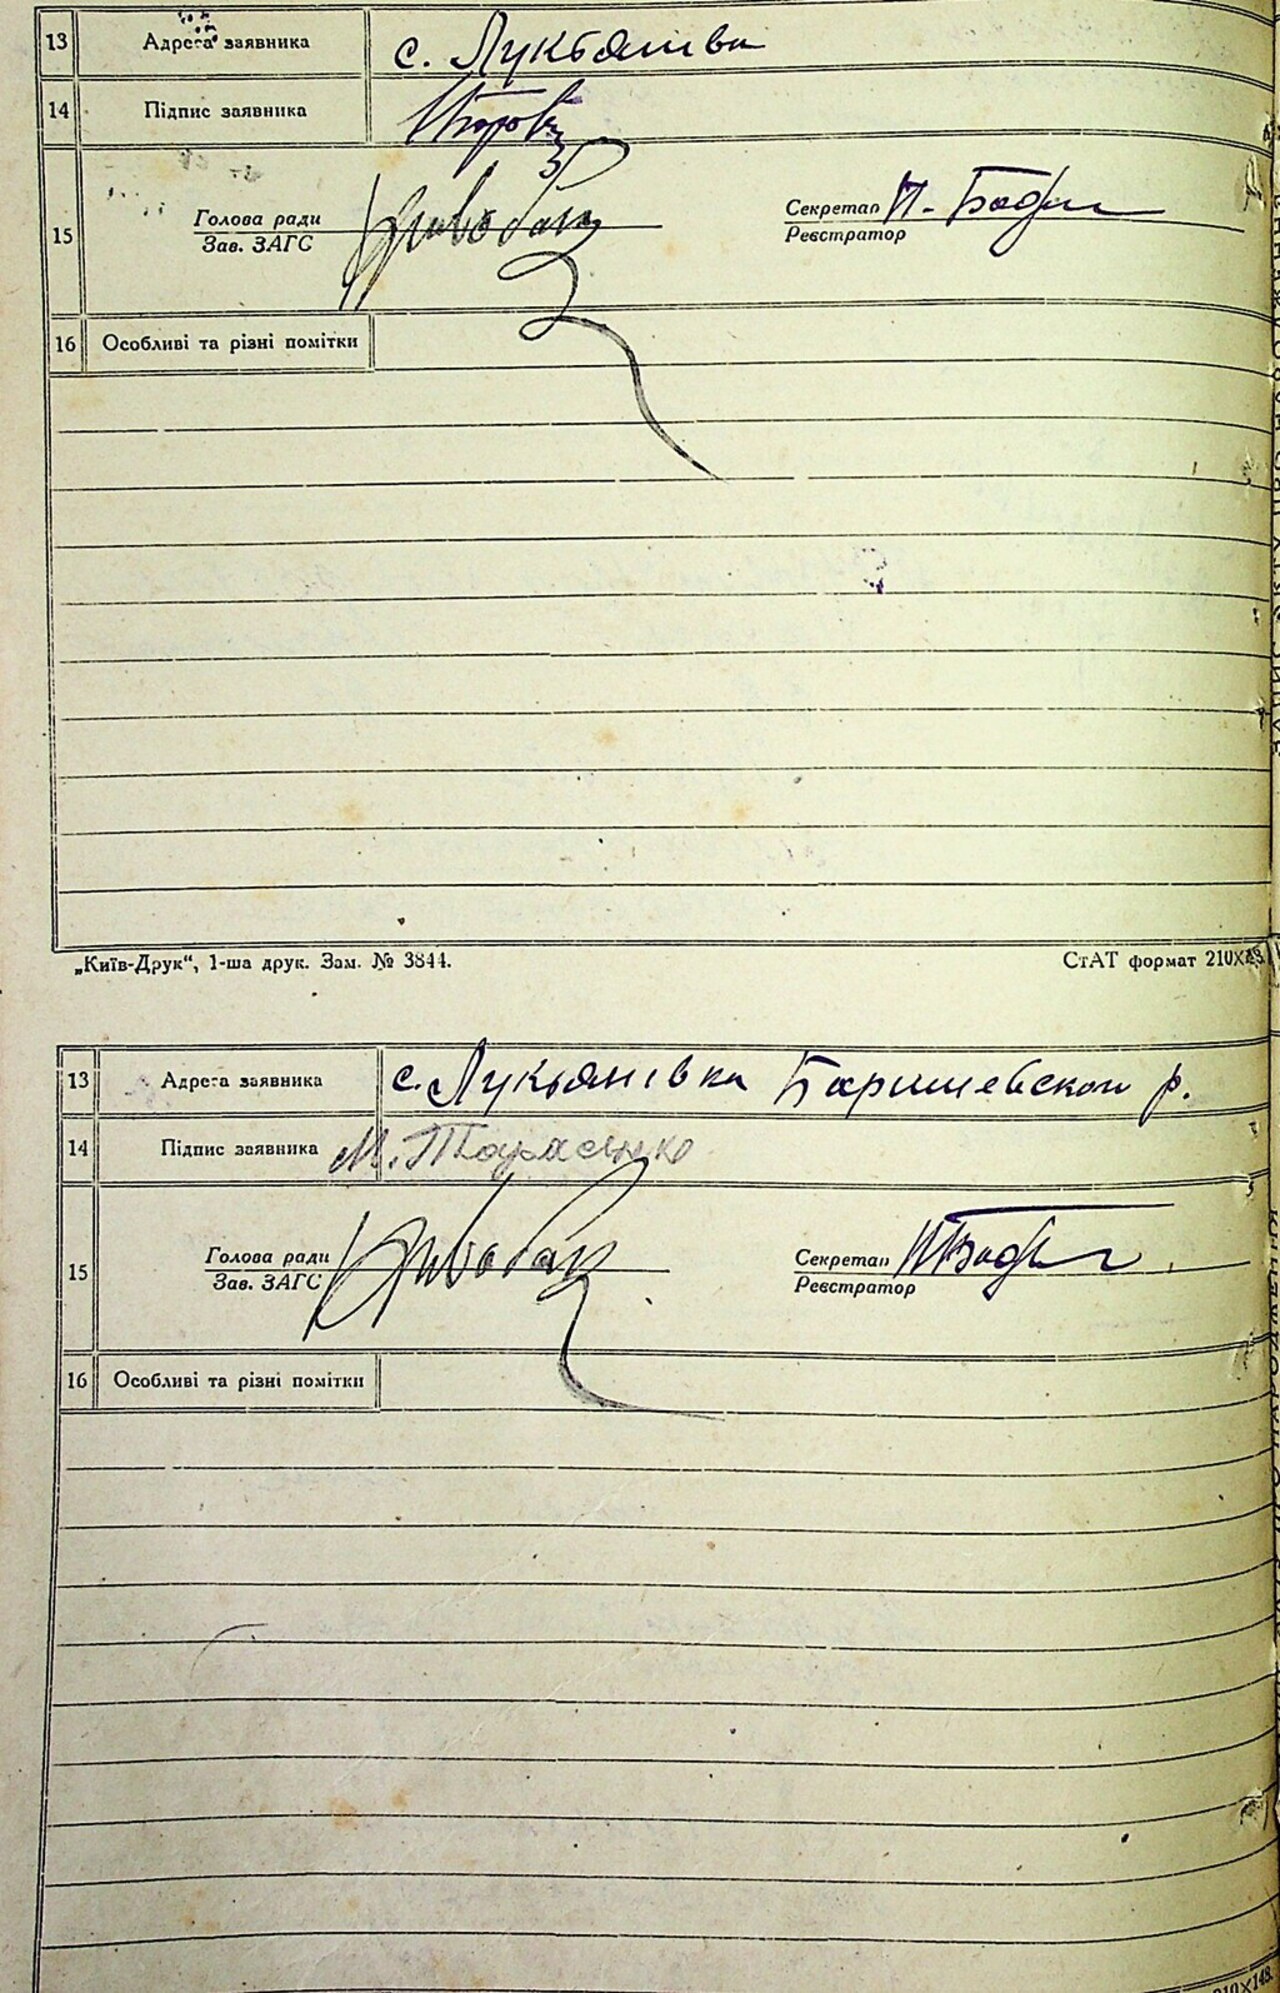 13 Адреса заявника с. Лукьянівка
14 Підпис заявника
15 Голова ради Секретар
Зав. ЗАГС Реєстратор
16 Особливі та різні помітки
„Київ-Друк“, 1-ша друк. Зам. № 3844. СтАТ формат 210×148
13 Адреса заявника с. Лукьянівка Баришевског р.
14 Підпис заявника М. Тарасенко
15 Голова ради Секретар
Зав. ЗАГС Реєстратор
16 Особливі та різні помітки
210×148.